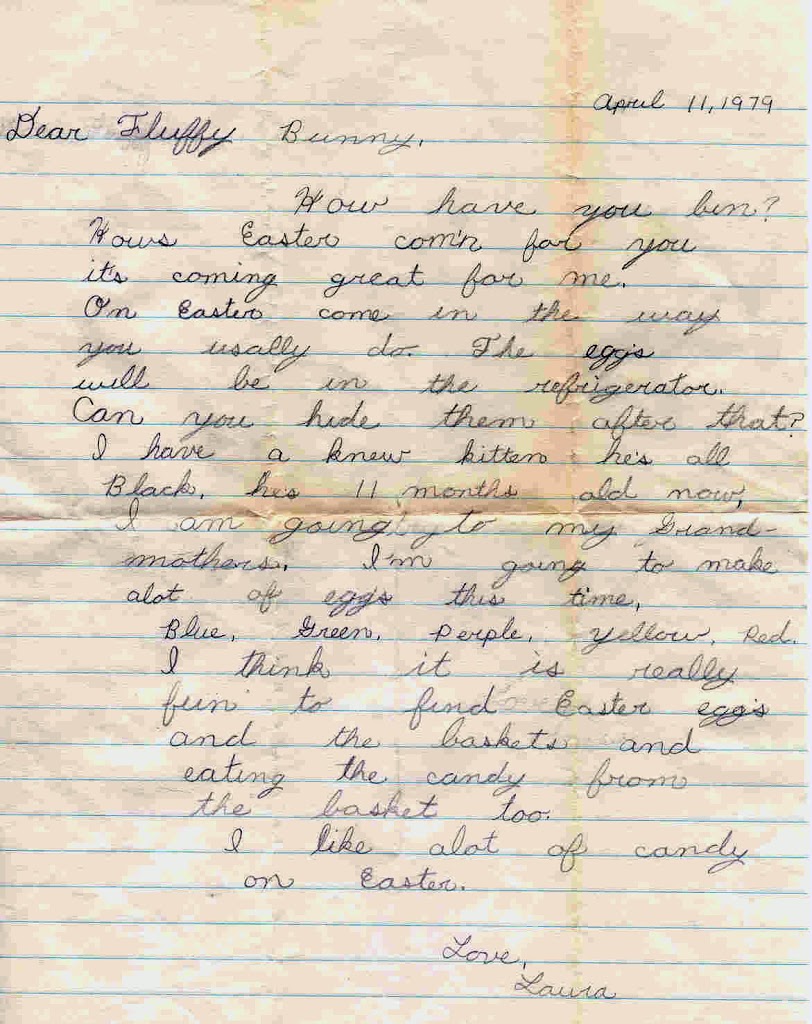 April 11, 1979
Dear Fluffy Bunny,
How have you bin?
Hows Easter com'n for you
it's coming great for me.
On Easter come in the way
you usally do. The eggs
will be in the refrigerator.
Can you hide them after that?
I have a knew kitten he's all
Black, he's 11 months old now,
I am going to my Grand-
mothers. I'm going to make
alot of eggs this time,
Blue, Green, Perple, yellow, Red.
I think it is really
fun to find Easter eggs
and the baskets and
eating the candy from
the basket too.
I like alot of candy
on Easter.
Love,
Laura